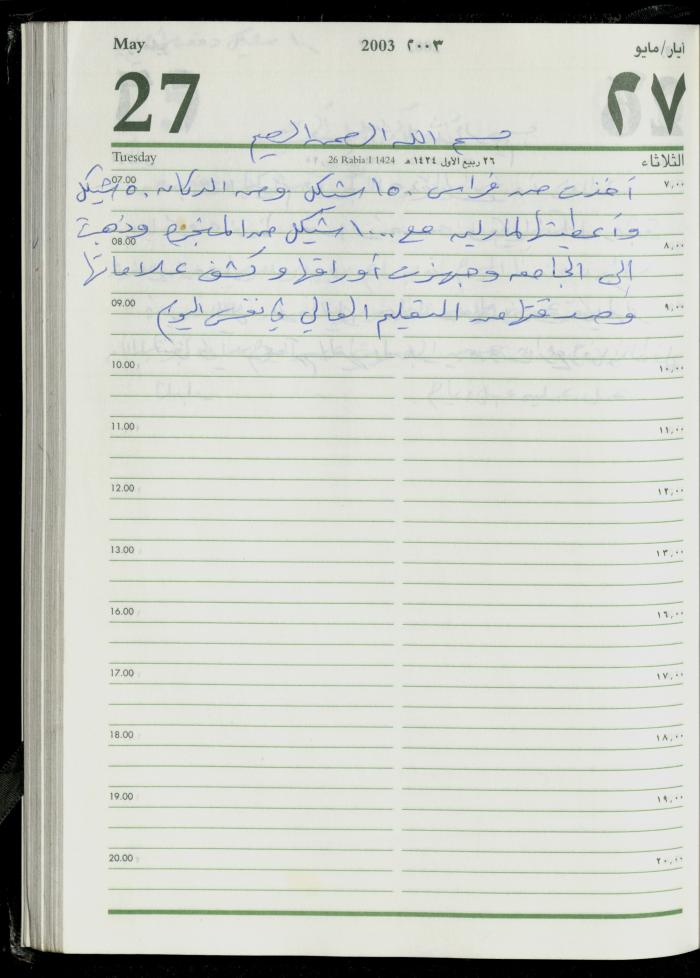 May 2003 ٢٠٠٣ أيار/مايو
27 ٢٧
بسم الله الرحمن الرحيم
Tuesday 26 Rabia I 1424 ٢٦ ربيع الأول ١٤٢٤ هـ الثلاثاء
07.00 ٧,٠٠
أخذت من فراس ١٥٠ شيكل ومن الدكانه ٥٠ شيكل
وأعطيتها لمارلين مع ١٠٠٠ شيكل من وذهبت
08.00 ٨,٠٠
الى الجامعه وجهزت أوراقها وكشف علاماتها
09.00 ٩,٠٠
وصدقتها من التعليم العالي في نفس اليوم
10.00 ١٠,٠٠
11.00 ١١,٠٠
12.00 ١٢,٠٠
13.00 ١٣,٠٠
16.00 ١٦,٠٠
17.00 ١٧,٠٠
18.00 ١٨,٠٠
19.00 ١٩,٠٠
20.00 ٢٠,٠٠